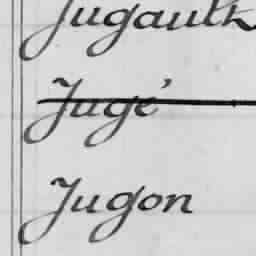 Jugault
Jugé
Jugon